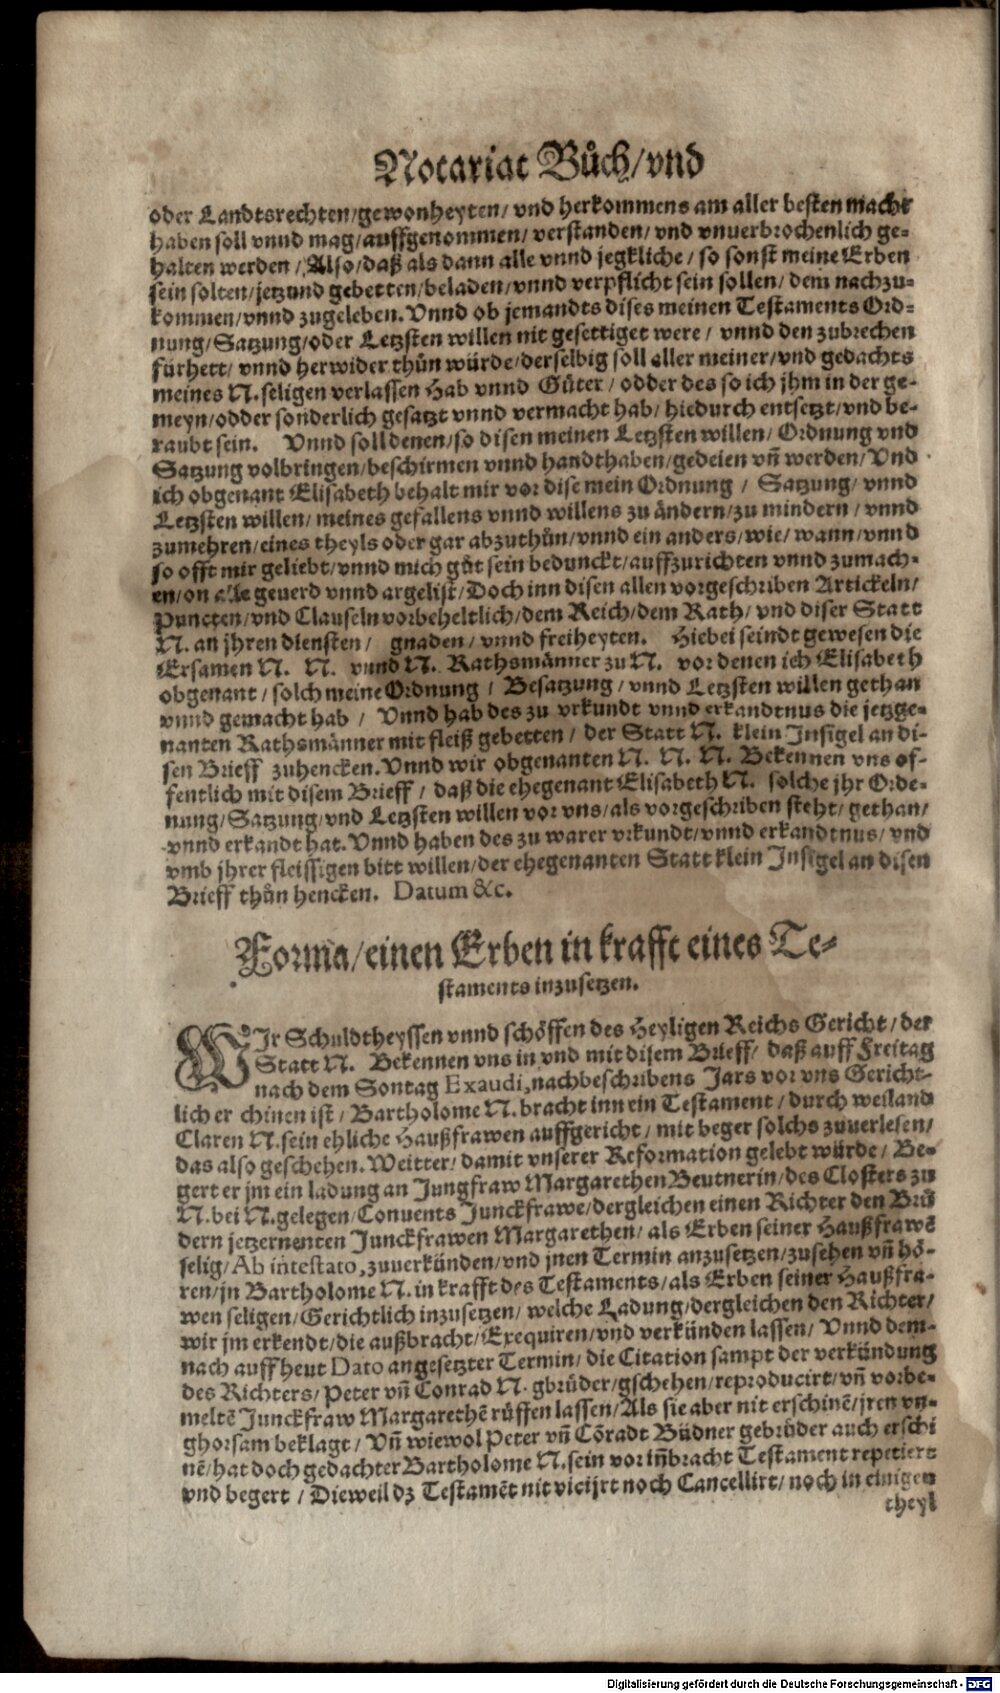 Notariat Bůch/vnd
oder Landtsrechten/gewonheyten/ vnd herkommens am aller besten macht
haben soll vnnd mag/auffgenommen/ verstanden/ vnd vnuerbrochenlich ge-
halten werden /Also/daß als dann alle vnnd jegkliche/ so sonst meine Erben
sein solten/jetzund gebetten/beladen/vnnd verpflicht sein sollen/ dem nachzu-
kommen/vnnd zugeleben. Vnnd ob jemandts dises meinen Testaments Ord-
nung/Satzung/oder Letzsten willen nit gesettiget were/ vnnd den zubrechen
fürhett/ vnnd herwider thůn würde/derselbig soll aller meiner/vnd gedachts
meines N. seligen verlassen Hab vnnd Güter/ odder des so ich jhm in der ge-
meyn/odder sonderlich gesatzt vnnd vermacht hab/ hiedurch entsetzt/vnd be-
raubt sein. Vnnd soll denen/so disen meinen Letzsten willen/ Ordnung vnd
Satzung volbringen/beschirmen vnnd handthaben/gedeien vñ werden/Vnd
ich obgenant Elisabeth behalt mir vor dise mein Ordnung / Satzung/ vnnd
Letzsten willen/ meines gefallens vnnd willens zu ändern/zu mindern/ vnnd
zumehren/eines theyls oder gar abzuthůn/vnnd ein anders/wie/wann/vnnd
so offt mir geliebt/vnnd mich gůt sein bedunckt/auffzurichten vnnd zumach-
en/on alle geuerd vnnd argelist/Doch inn disen allen vorgeschriben Artickeln/
Puncten/vnd Clauseln vorbeheltlich/dem Reich/dem Rath/ vnd diser Statt
N. an jhren diensten/ gnaden/ vnnd freiheyten. Hiebei seindt gewesen die
Ersamen N. N. vnnd N. Rathsmänner zu N. vor denen ich Elisabeth
obgenant/ solch meine Ordnung / Besatzung/ vnnd Letzsten willen gethan
vnnd gemacht hab / Vnnd hab des zu vrkundt vnnd erkandtnus die jetzge-
nanten Rathsmänner mit fleiß gebetten/ der Statt N. klein Insigel an di-
sen Brieff zuhencken. Vnnd wir obgenanten N. N. N. Bekennen vns of-
fentlich mit disem Brieff / daß die ehegenant Elisabeth N. solche jhr Orde-
nung/Satzung/vnd Letzsten willen vor vns/als vorgeschriben steht/ gethan/
vnnd erkandt hat. Vnnd haben des zu warer vrkundt/vnnd erkandtnus/ vnd
vmb jhrer fleissigen bitt willen/der ehegenanten Statt klein Insigel an disen
Brieff thůn hencken. Datum &c.
Forma/einen Erben in krafft eines Te-
staments inzusetzen.
WIr Schuldtheyssen vnnd schöffen des Heyligen Reichs Gericht/ der
Statt N. Bekennen vns in vnd mit disem Brieff/ daß auff Freitag
nach dem Sontag Exaudi, nachbeschribens Jars vor vns Gericht-
lich er chinen ist/ Bartholome N. bracht inn ein Testament/ durch weiland
Claren N. sein ehliche Haußfrawen auffgericht/ mit beger solchs zuuerlesen/
das also geschehen. Weitter/ damit vnserer Reformation gelebt würde/ Be-
gert er jm ein ladung an Jungfraw Margarethen Beutnerin/des Closters zu
N. bei N. gelegen/Conuents Junckfrawe/dergleichen einen Richter den Brü
dern jetzernenten Junckfrawen Margarethen/ als Erben seiner Haußfrawē
selig/Ab intestato, zuuerkünden/vnd jnen Termin anzusetzen/zusehen vñ hö-
ren/jn Bartholome N. in krafft des Testaments/als Erben seiner Haußfra-
wen seligen/Gerichtlich inzusetzen/ welche Ladung/dergleichen den Richter/
wir jm erkendt/die außbracht/Exequiren/vnd verkünden lassen/ Vnnd dem-
nach auff heut Dato angesetzter Termin/ die Citation sampt der verkündung
des Richters/ Peter vñ Conrad N. gbrüder/gschehen/reproducirt/vñ vorbe-
meltē Junckfraw Margarethē růffen lassen/Als sie aber nit erschinē/jren vn-
ghorsam beklagt/ Vñ wiewol Peter vñ Cõradt Büdner gebrüder auch erschi
nē/hat doch gedachter Bartholome N. sein vor iñbracht Testament repetiert
vnd begert / Dieweil dz Testamēt nit vicijrt noch Cancellirt/ noch in einigen
theyl
Digitalisierung gefördert durch die Deutsche Forschungsgemeinschaft - DFG